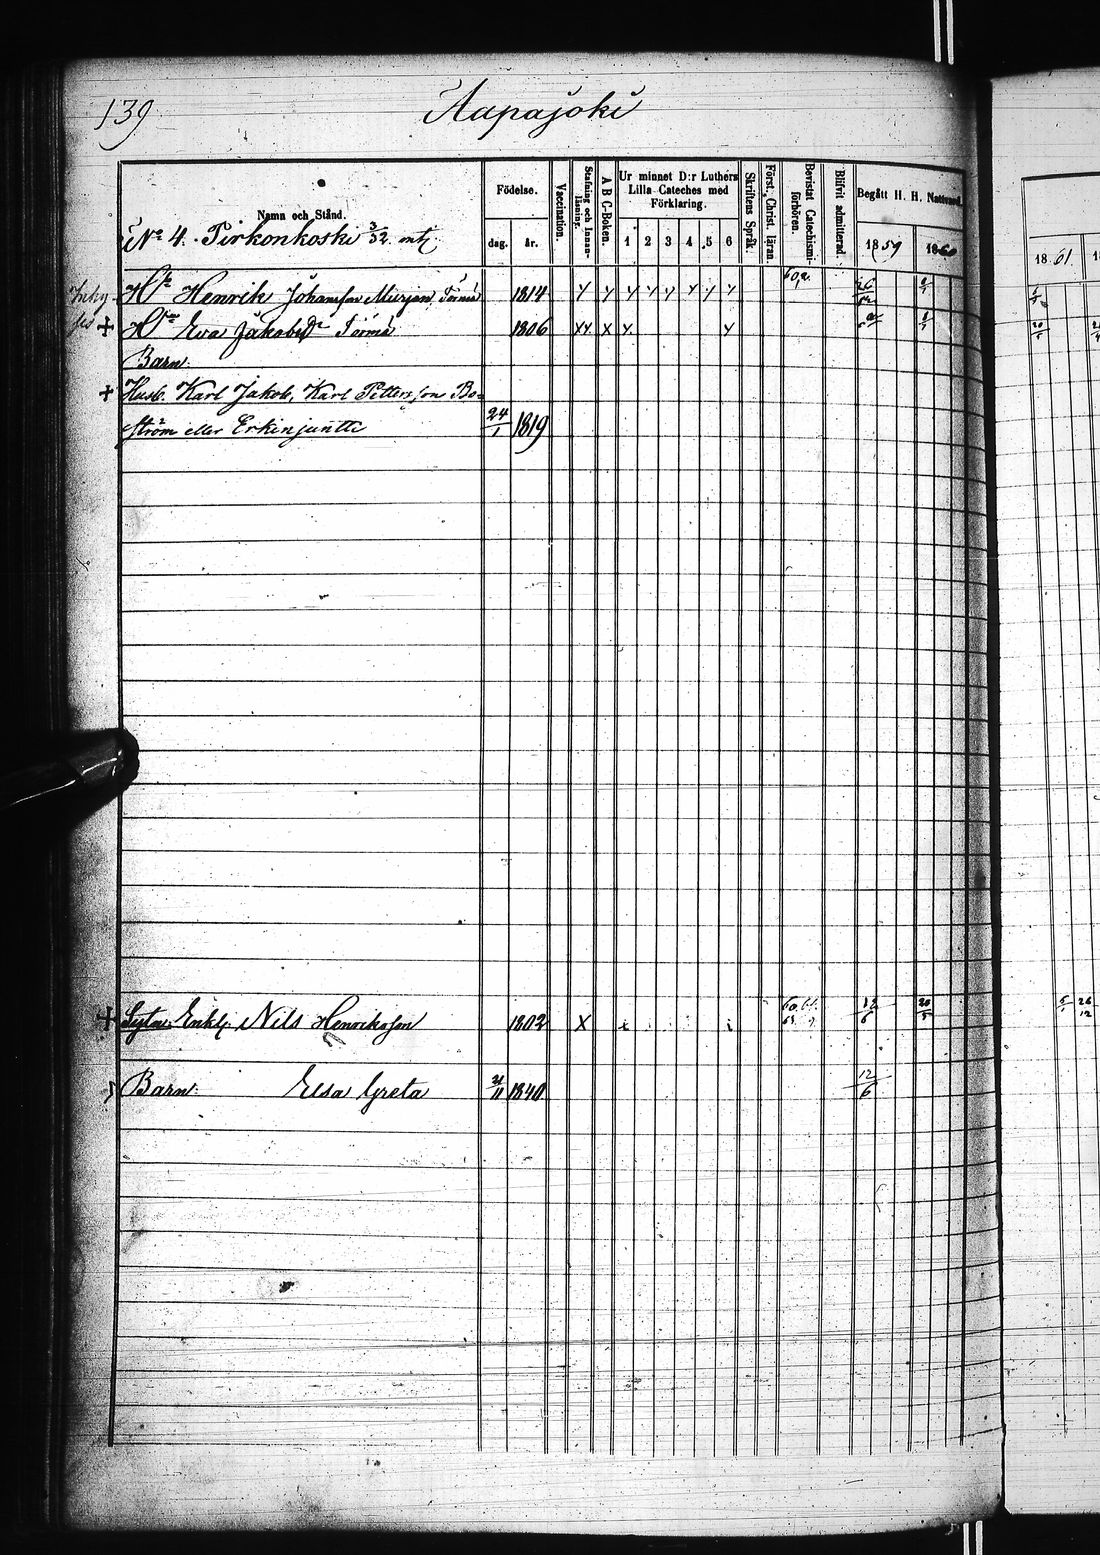 139
Aapajoki
Namn och Stånd.
Födelse.
dag. år.
Vaccination.
Stafning och Innan-läsning.
A B C-Boken.
Ur minnet D:r Luthers
Lilla Cateches med
Förklaring.
1 2 3 4 5 6
Skriftens Språk.
Först. Christ. läran
Bevistat Catechismi-förhören.
Blifvit admitterad.
Begått H. H. Nattvard.
1859 1860
1861
No 4. Pirkonkoski 3/32 mtl
Henrik Johansson Törmä 1814 60,
+ Eva Jakobsdr Törmä 1806 xx x x
Barn:
+ Husb. Karl Jakob, Karl Pettersson Bo-
ström eller Erkinjuntti 24/1 1819
+ Enkl. Nils Henriksson 1802 x 12/6 20/5 26/12
Barn: Elsa Greta 1840 12/6